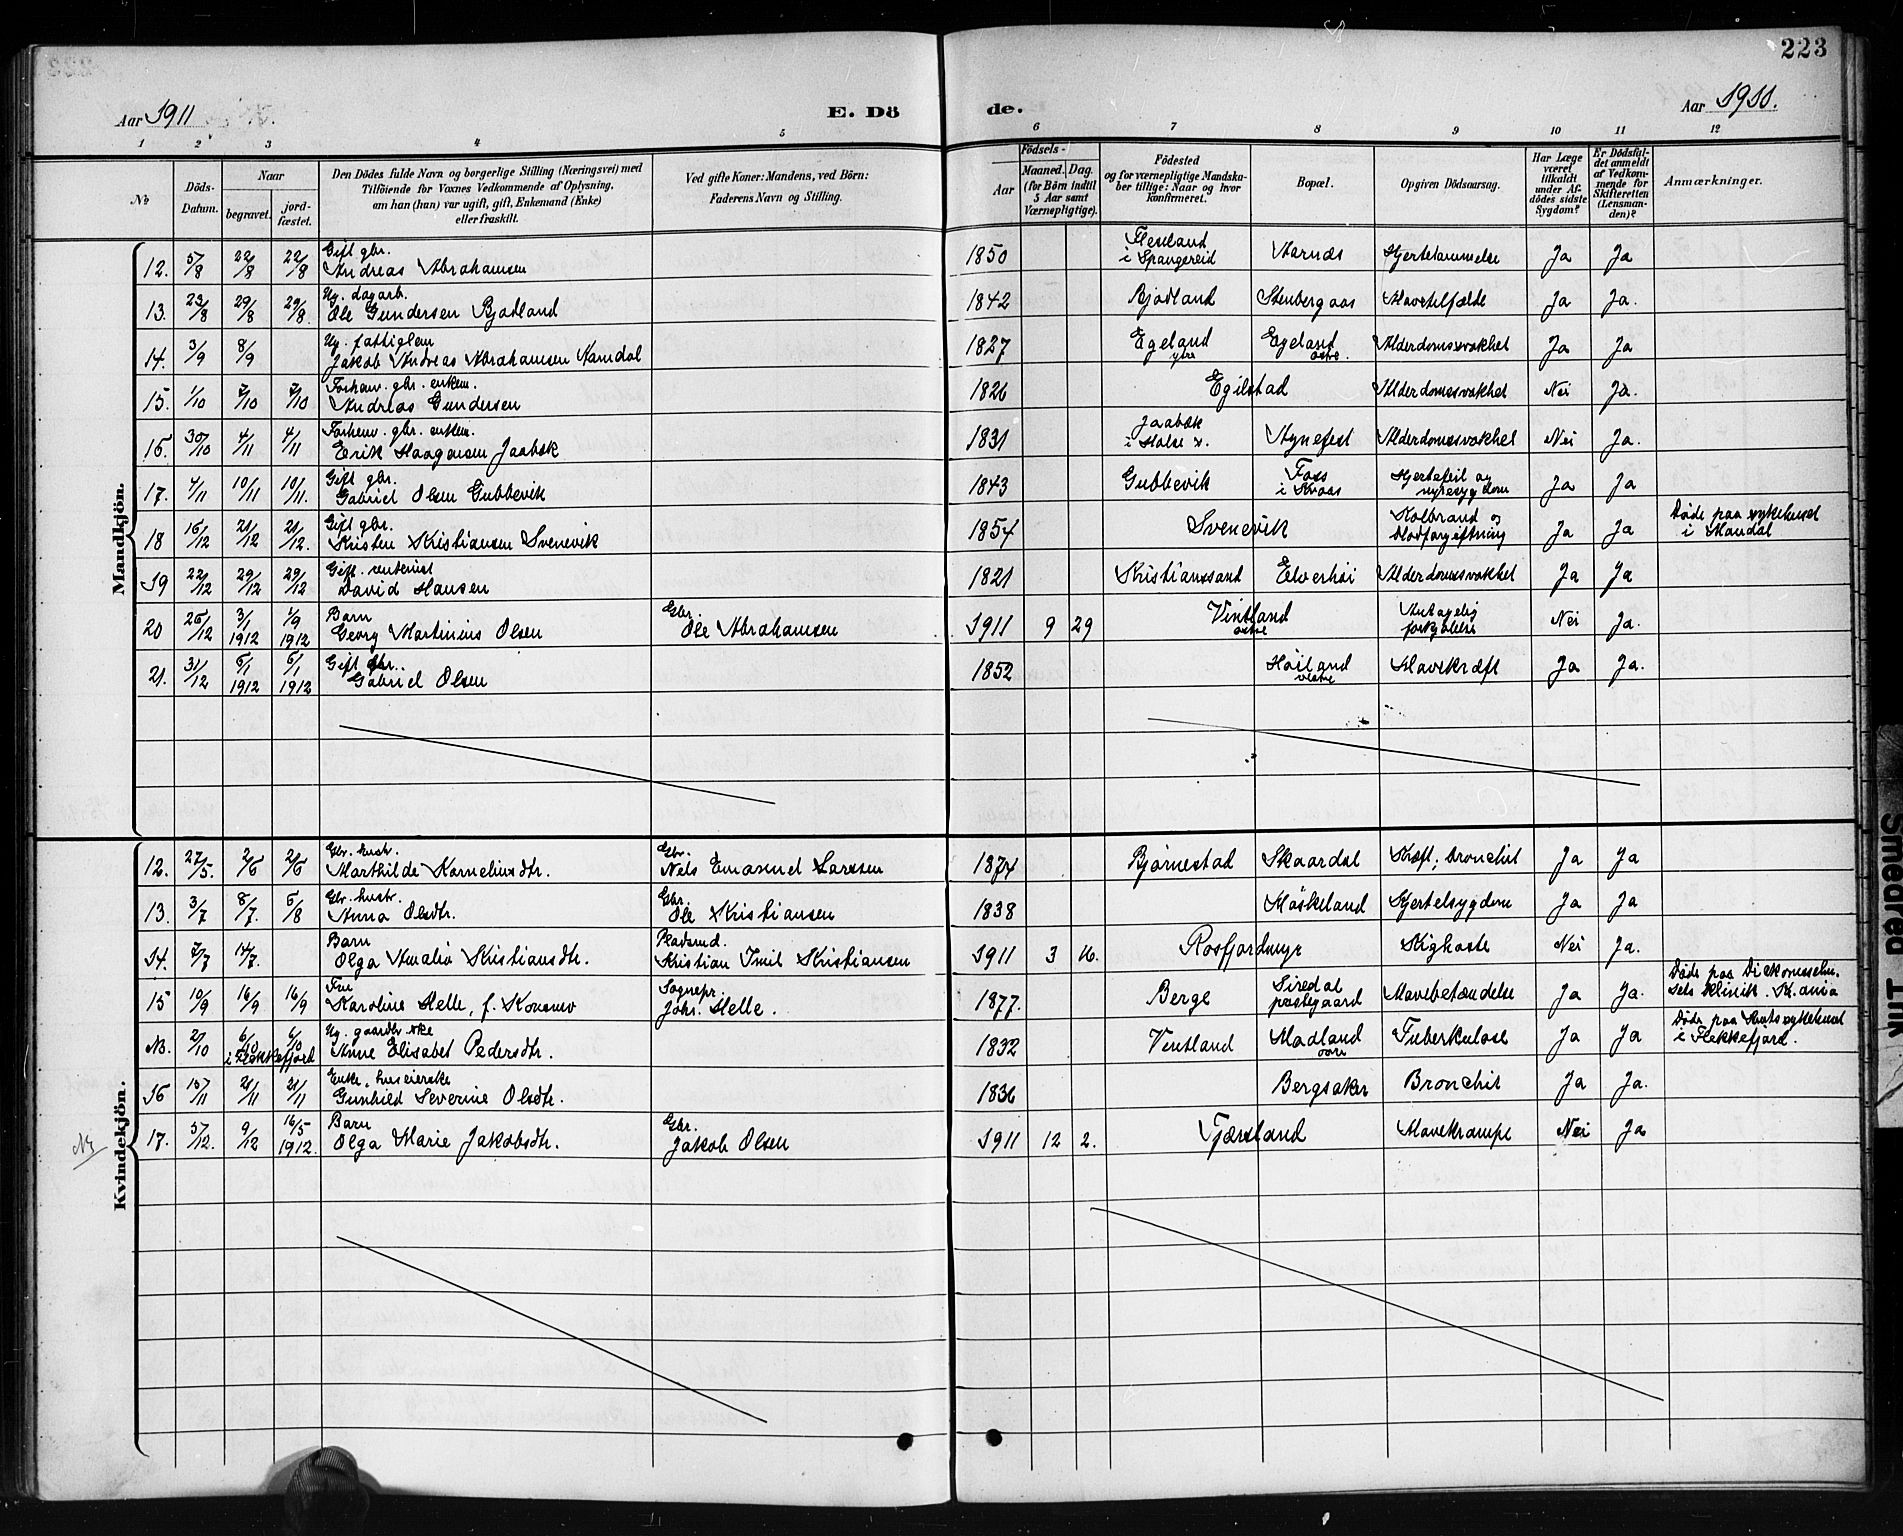 223
Aar 1911
E. Dö
de.
Aar 1911.
1 2 3 4 5 6 7 8 9 10 11 12
No
Döds-Datum.
Naar
begravet.
jord-fæstet.
Den Dödes fulde Navn og borgerlige Stilling (Næringsvei) med
Tilföiende for Voxnes Vedkommende af Oplysning,
om han (hun) var ugift, gift, Enkemand (Enke)
eller fraskilt.
Ved gifte Koner: Mandens, ved Börn:
Faderens Navn og Stilling.
Födsels-
Aar
Maaned. Dag.
(for Börn indtil
5 Aar samt
Værnepligtige).
Födested
og for værnepligtige Mandska-
ber tillige: Naar og hvor
konfirmeret.
Bopæl.
Opgiven Dödsaarsag.
Har Læge
været
tilkaldt
under Af-
dödes sidste
Sygdom?
Er Dödsfal-
det anmeldt
af Vedkom-
mende for
Skifteretten
(Lensman-
den)?
Anmærkninger.
Mandkjön.
12. 5/8 22/8 22/8 Gift gbr. Andreas Abrahamsen 1850 i Spangereid Aarnæs Hjertelammelse Ja Ja
13. 23/8 29/8 29/8. Ug. dagarb. Ole Gundersen Bjadland 1842 Bjadland Stenbergaas Mavetilfælde Ja Ja.
14. 3/9 8/9 Ug. fattiglem Jakob Andreas Abrahamsen Aamdal 1827 Egeland ytre Egeland østre. Alderdomssvakhet Ja Ja
15. 1/10 7/10 7/10 Forhenv. gbr. enkem. Andreas Gundersen 1826 Egilstad Alderdomssvakhet Nei Ja.
16. 30/10 4/11 4/11 Forhenv. gbr. enkem. Erik Haagensen Jaabæk 1831 Jaabæk i Halse s. Agnefest Alderdomssvakhet Nei Ja.
17. 4/11 10/11 10/11. Gift gbr. Gabriel Olsen Gubbevik 1843 Gubbevik Foss i Kvaas Hjertefeil og nyresygdom Ja Ja
18 16/12 21/12 21/12. Gift gbr. Kristen Kristiansen Svenevik 1854 Svenevik Kolbrand og blodforgiftning Ja Ja Døde paa sykehuset i Mandal
19 22/12 29/12 29/12 Gift. David Hansen 1821 Kristianssand Elverhøi Alderdomssvakhet Ja Ja
20 26/12 3/1 1912 1/9 1912 Barn Georg Martinius Olsen Gbr. Ole Abrahamsen 1911 9 29 Vintland østre Antagelig forkjølelse Nei Ja.
21. 31/12 6/1 1912 6/1 1912 Gift gbr. Gabriel Olsen 1852 Høiland vestre Mavekræft Ja Ja.
Kvindekjön.
12. 27/5. 2/6 2/6 Gbr. hustr. Marthilde Korneliusdtr. Gbr. Nels Emanuel Larssen 1874 Bjørnestad Skaardal Kræft; bronchit Ja Ja
13. 3/7 8/7. 6/8 Gbr. hustr. Anna Olsdtr. Gbr. Ole Kristiansen 1838 Møskeland Hjertesygdom Ja Ja
14. 7/7 14/7. Barn Olga Amalie Kristiansdtr. Pladsmd. Kristian Emil Kristiansen 1911 3 16. Rosfjordmyr Kighoste Nei Ja.
15 10/9 16/9 16/9 Fru Karoline Helle, f. Sognepr. Johs. Helle. 1877. Berge Siredal prestegaard Mavebetændelse Ja Ja. Døde paa Klinik. Kr.ania
NB. 2/10 6/10 6/10 i Flekkefjord Ug. gaardbr.ske Anne Elisabet Pedersdtr. 1832 Vintland Madland Tuberkulose Ja Ja Døde paa Amtssykehuset i Flekkefjord.
16 15/11 21/11 21/11 Enke, huseierske Gunhild Severine Olsdtr. 1836 Bergsaker Bronchit Ja Ja.
NB 17. 5/12. 9/12 16/5 1912. Barn Olga Marie Jakobsdtr. Gbr. Jakob Olsen 1911 12 2. Fjæreland Mavekrampe Nei Ja